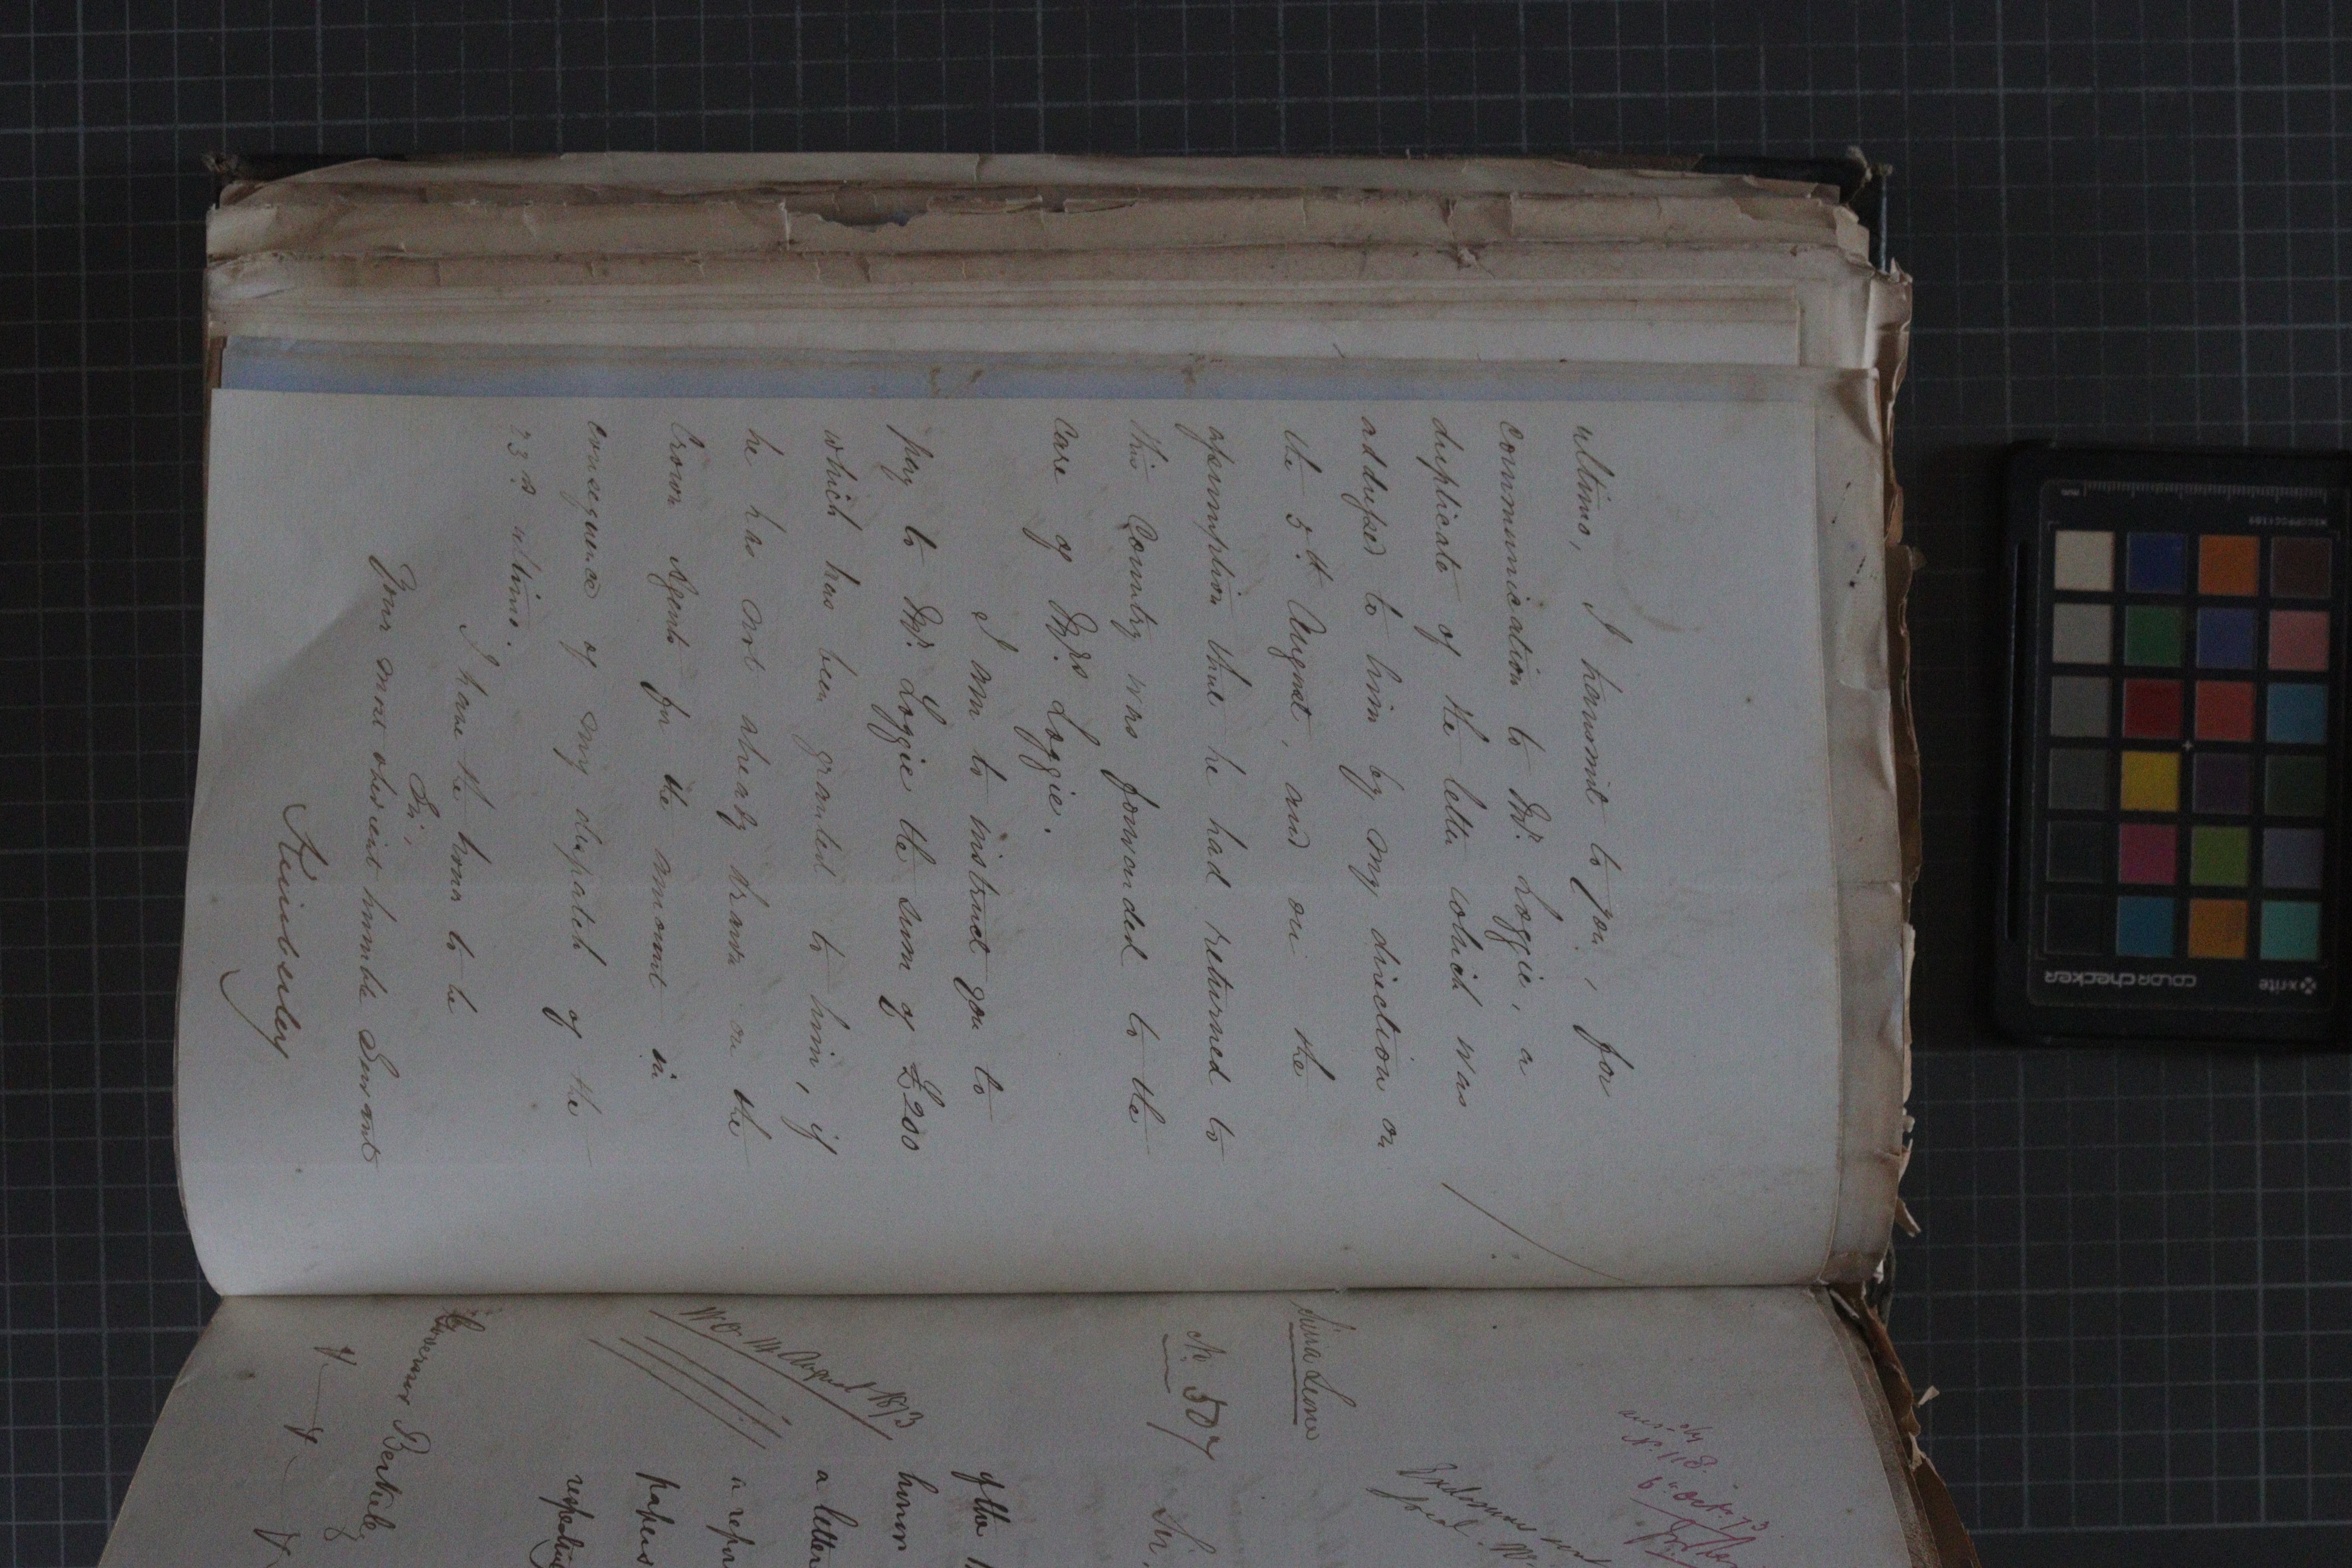 ultimo, I transmit to you, for
communication to Mr. Loggie, a
duplicate of the letter which was
addressed to him by my direction on
the 5th August, and on the
assumption that he had returned to
this Country was forwarded to the
care of Mrs Loggie.
I am to instruct you to
pay to Mr. Loggie the sum of £200
which has been granted to him, if
he has not already drawn on the
Crown Agents for the amount in
consequence of my despatch of the
23rd ultimo.
I have the honor to be
Sir,
Your most obedient humble Servant
Kimberley
ans. by
No. 118.
6 Oct. 73
Sierra Leone
No. 507
Sir.
W.O. 14 August 1873
of the
honor
a letter
a repor
papers
respecting
Governor Berkeley
x-rite
colorchecker
mm